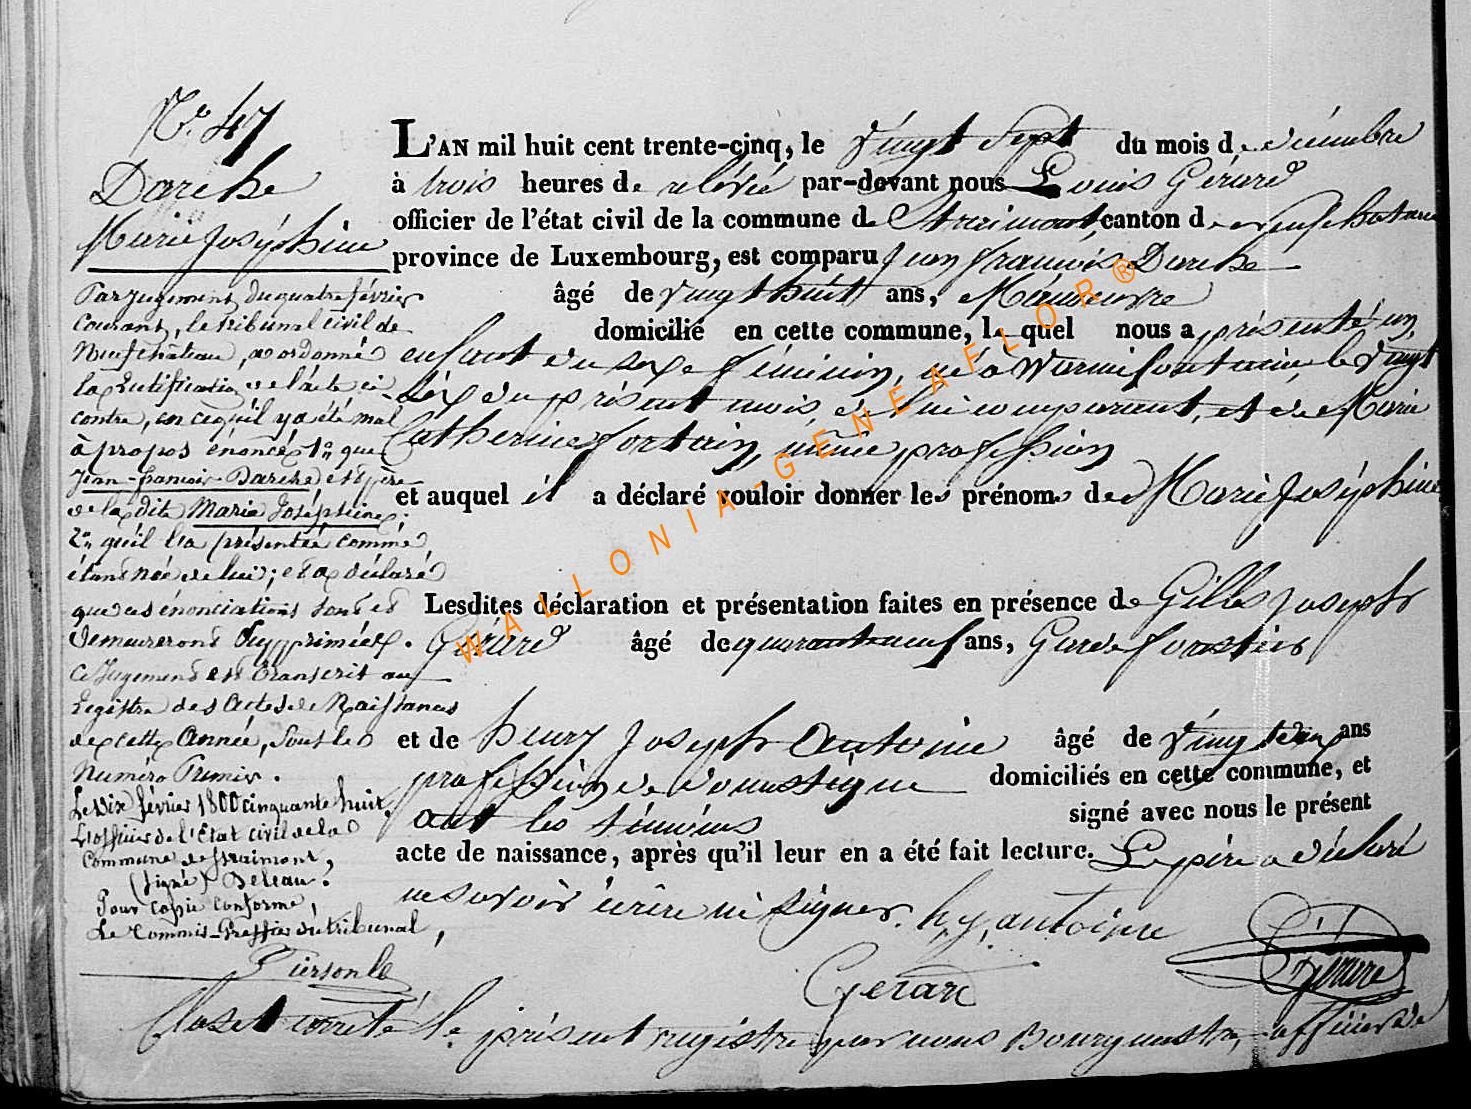 N.º 47
Darche
Marie Joséphine
Par jugement du quatre février
courant, le tribunal civil de
Neufchâteau, a ordonné
la Rectification de l'acte ci-
contre, en ce qu'il y a été mal
à propos énoncé 1.º que
Jean-françois Darche est père
de la dite Marie Joséphine;
2.º qu'il l'a présentée comme
étant née de lui; et a déclaré
que ces énonciations sont et
demeureront supprimées.
Ce jugement est transcrit au
Registre des Actes de Naissances
de cette Année, sous le
Numéro Premier.
Le dix février 1800 cinquante huit.
L'officier de l'Etat civil de la
Commune de Straimont,
(signé)
Pour copie conforme,
Le Commis-Greffier du tribunal,
L'AN mil huit cent trente-cinq, le vingt sept du mois de décembre
à trois heures de relevée par-devant nous Louis Gérard
officier de l'état civil de la commune de Straimont, canton de neufchateau
province de Luxembourg, est comparu Jean françois Darche
âgé de vingt huit ans, Manœuvre
domicilié en cette commune, lequel nous a présenté un
enfant du sexe féminin, né à Warmifontaine, le vingt
six du présent mois, de lui comparant, et de Marie
Catherine fortain, même profession
et auquel il a déclaré vouloir donner les prénoms de Marie Joséphine
Lesdites déclaration et présentation faites en présence de Gilles Joseph
Gérard âgé de quarante neuf ans, Garde forestier
et de henry Joseph Antoine âgé de vingt deux ans
profession de domestique domiciliés en cette commune, et
ont les témoins signé avec nous le présent
acte de naissance, après qu'il leur en a été fait lecture. Le père a déclaré
ne savoir écrire ni signer. h, j, antoine
Gerard
Gérard
Clos et arrêté le présent registre par nous Bourgmestre, officier de
WALLONIA-GENEAFLOR®